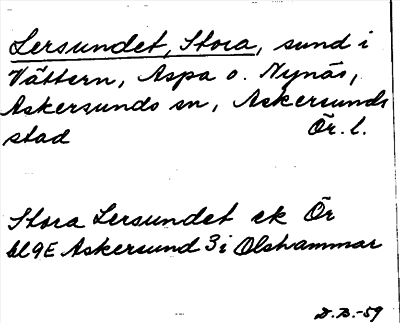 Lersundet, Stora, sund i
Vättern, Aspa o. Nynäs,
Askersunds sn, Askersunds
stad Ör. l.
Stora Lersundet ek Ör
bl 9E Askersund 3 i Olshammar
D.B.-59